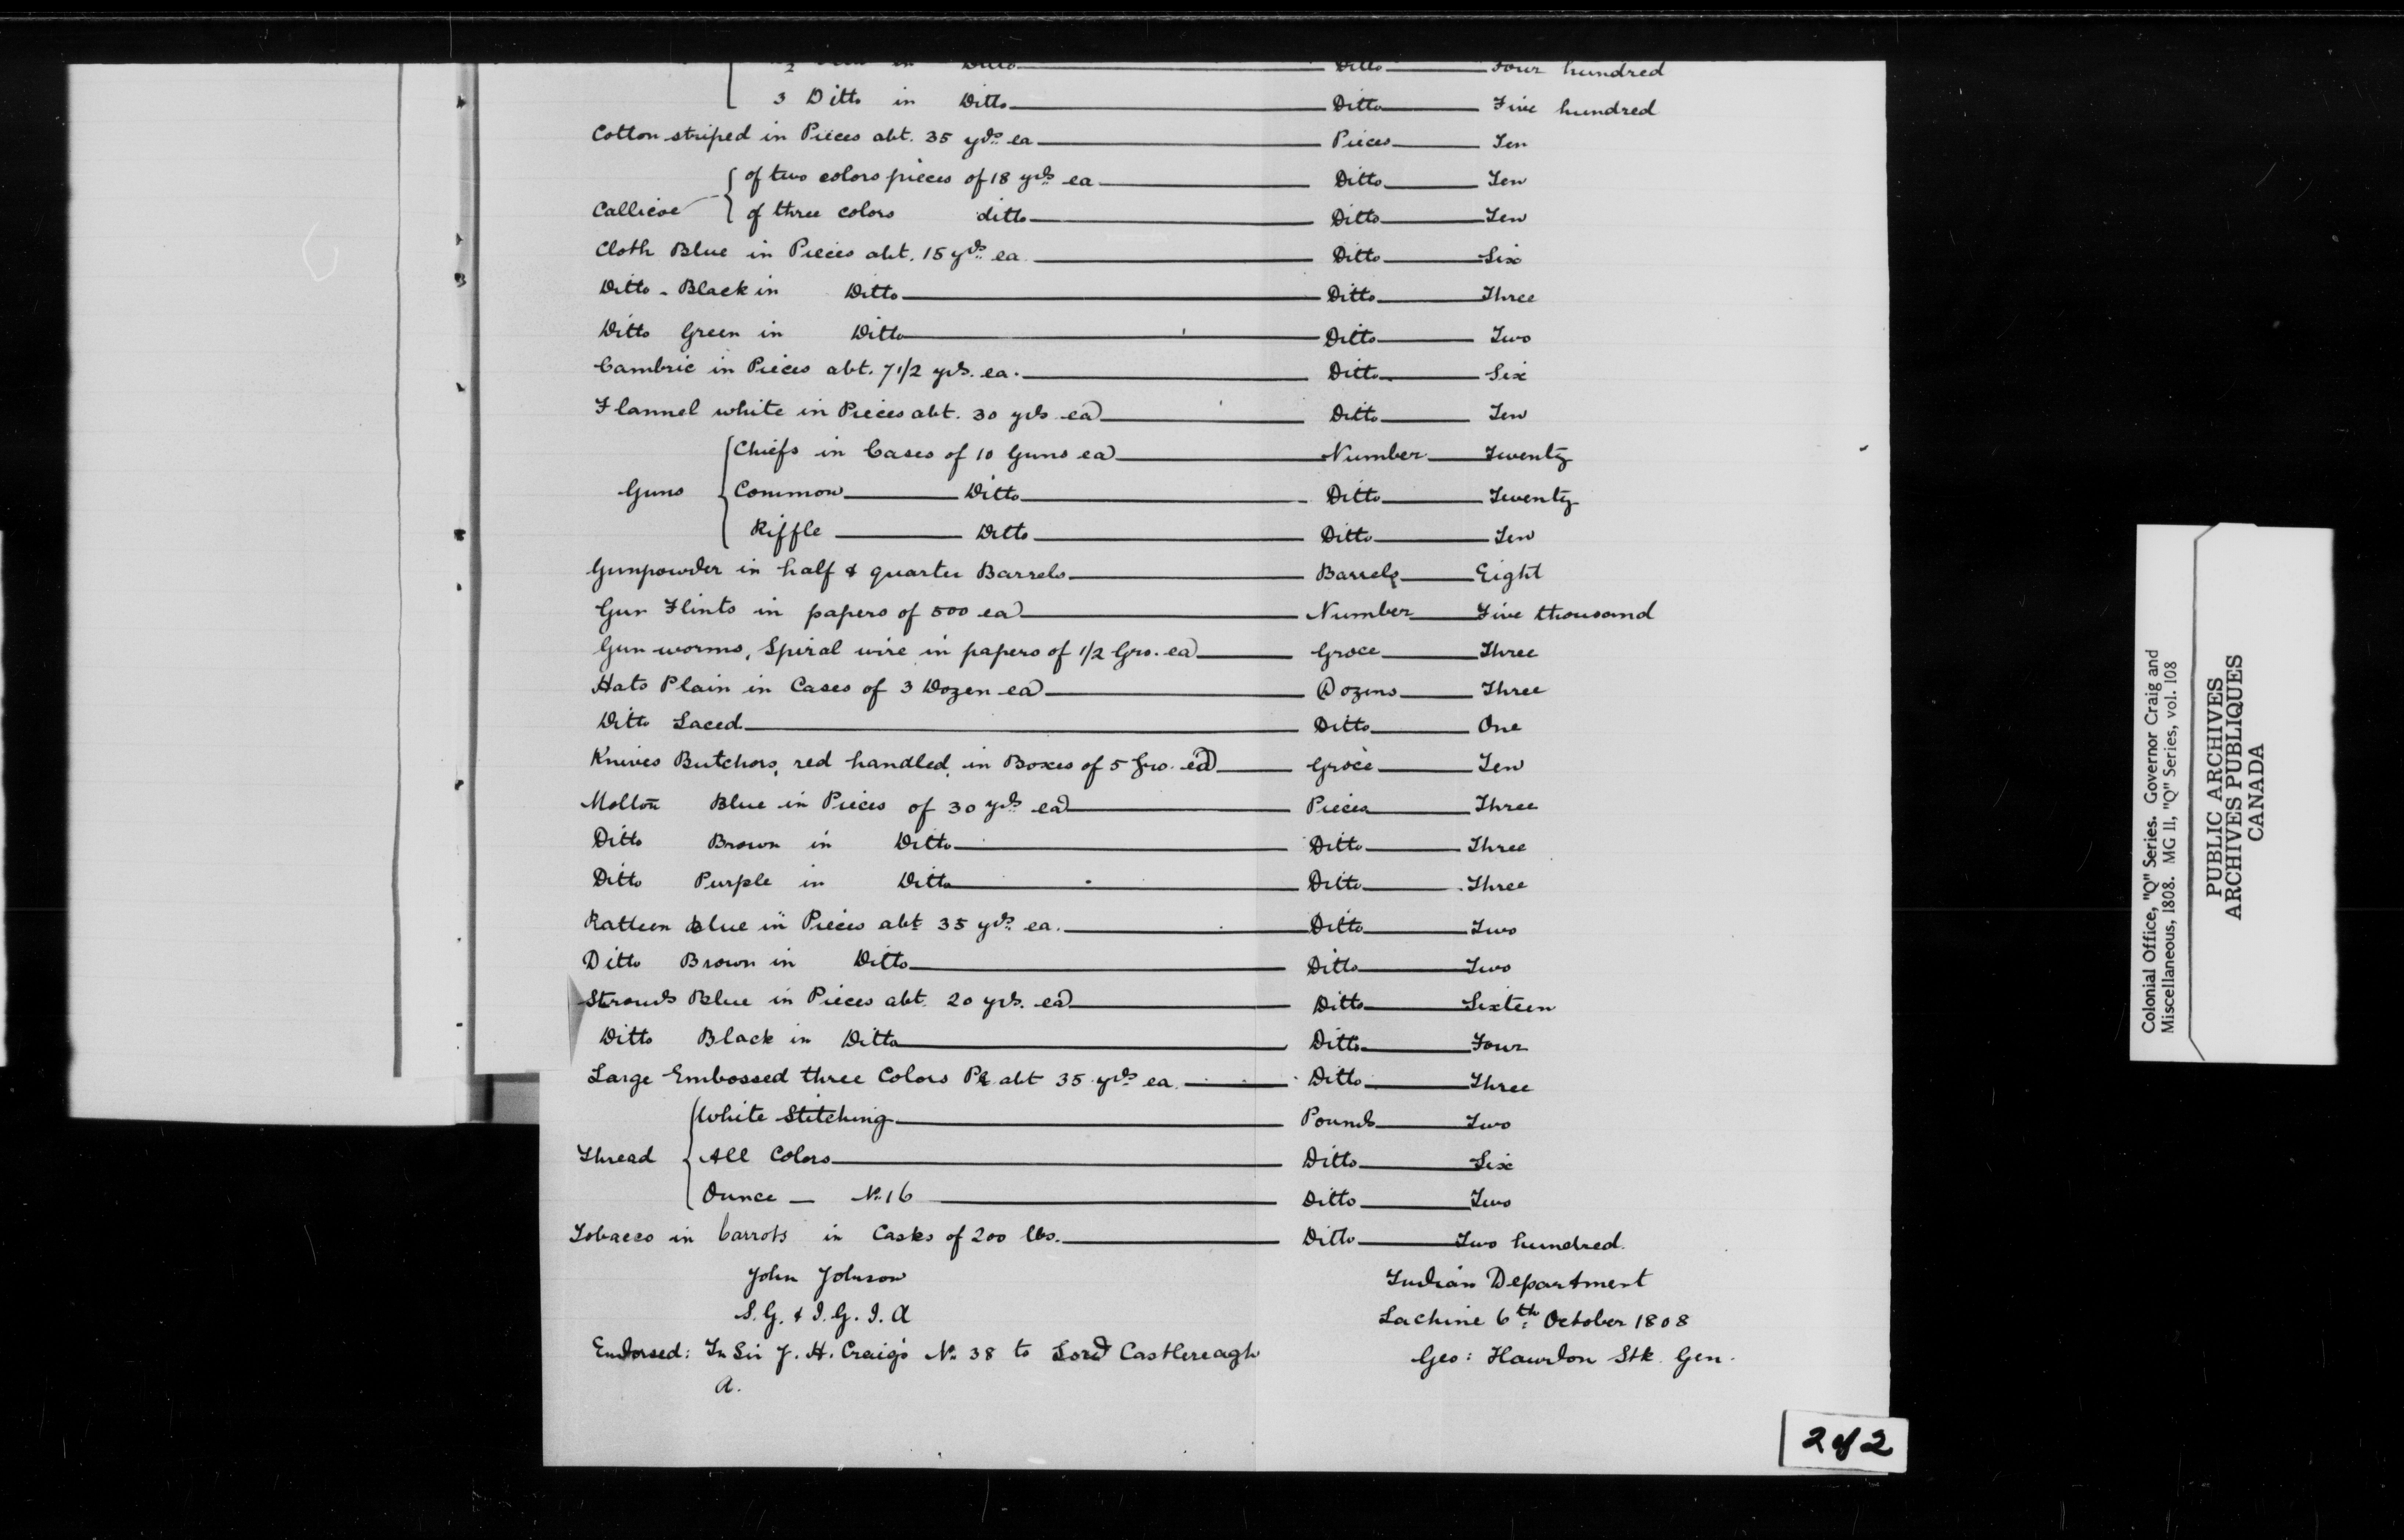 in Ditto Ditto Four hundred
3 Ditto in Ditto Ditto Five hundred
Cotton striped in Pieces abt. 35 yds ea Pieces Ten
of two colors pieces of 18 yds ea Ditto Ten
Callicoe of three colors ditto Ditto Ten
Cloth Blue in Pieces abt. 15 yds ea. Ditto Six
Ditto - Black in Ditto Ditto Three
Ditto Green in Ditto Ditto Two
Cambric in Pieces abt. 7 1/2 yds. ea. Ditto Six
Flannel white in Pieces abt. 30 yds ea Ditto Ten
Chiefs in Cases of 10 Guns ea Number Twenty
Guns Common Ditto Ditto Twenty
Riffle Ditto Ditto Ten
Gunpowder in half & quarter Barrels Barrels Eight
Gun Flints in papers of 500 ea Number Five thousand
Gun worms, Spiral wire in papers of 1/2 Gro. ea Groce Three
Hats Plain in Cases of 3 Dozen ea Dozens Three
Ditto Laced Ditto One
Knives Butchors, red handled, in Boxes of 5 Gro. ea Groce Ten
Molton Blue in Pieces of 30 yds ea Pieces Three
Ditto Brown in Ditto Ditto Three
Ditto Purple in Ditto Ditto Three
Ratteen Blue in Pieces abt 35 yds ea. Ditto Two
Ditto Brown in Ditto Ditto Two
Strouds Blue in Pieces abt. 20 yds. ea Ditto Sixteen
Ditto Black in Ditto Ditto Four
Large Embossed three Colors Ps. abt 35 yds ea. Ditto Three
White Stitching Pounds Two
Thread All Colors Ditto Six
Ounce — No. 16 Ditto Two
Tobacco in Carrots in Casks of 200 lbs. Ditto Two hundred.
John Johnson Indian Department
S. G. & I. G. I. A Lachine 6th October 1808
Endorsed: In Sir J. H. Craig's No. 38 to Lord Castlereagh Geo: Hawdon Stk. Gen.
A.
2 of 2
Colonial Office, "Q" Series. Governor Craig and
Miscellaneous, 1808. MG 11, "Q" Series, vol. 108
PUBLIC ARCHIVES
ARCHIVES PUBLIQUES
CANADA